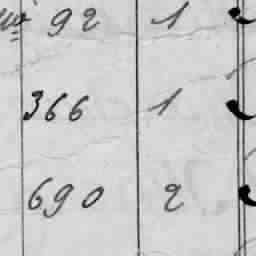 92 1
366 1
690 2